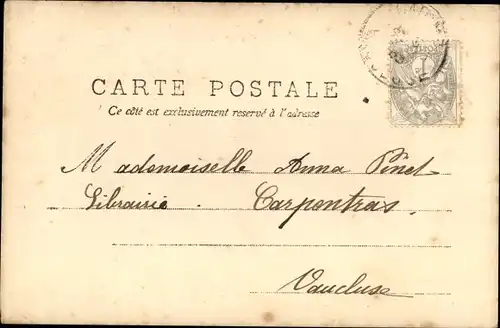 CARTE POSTALE
Ce côté est exclusivement reservé à l'adresse
Mademoiselle Anna Pinet
Librairie Carpentras.
Vaucluse